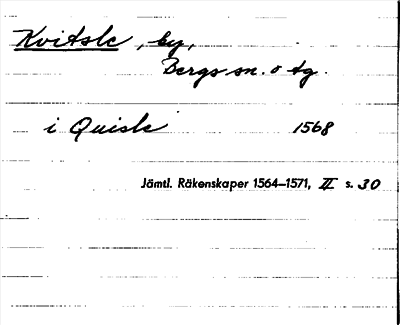 Kvitsle, by,
Bergs sn. o tg.
i Quisle 1568
Jämtl. Räkenskaper 1564–1571, II s. 30